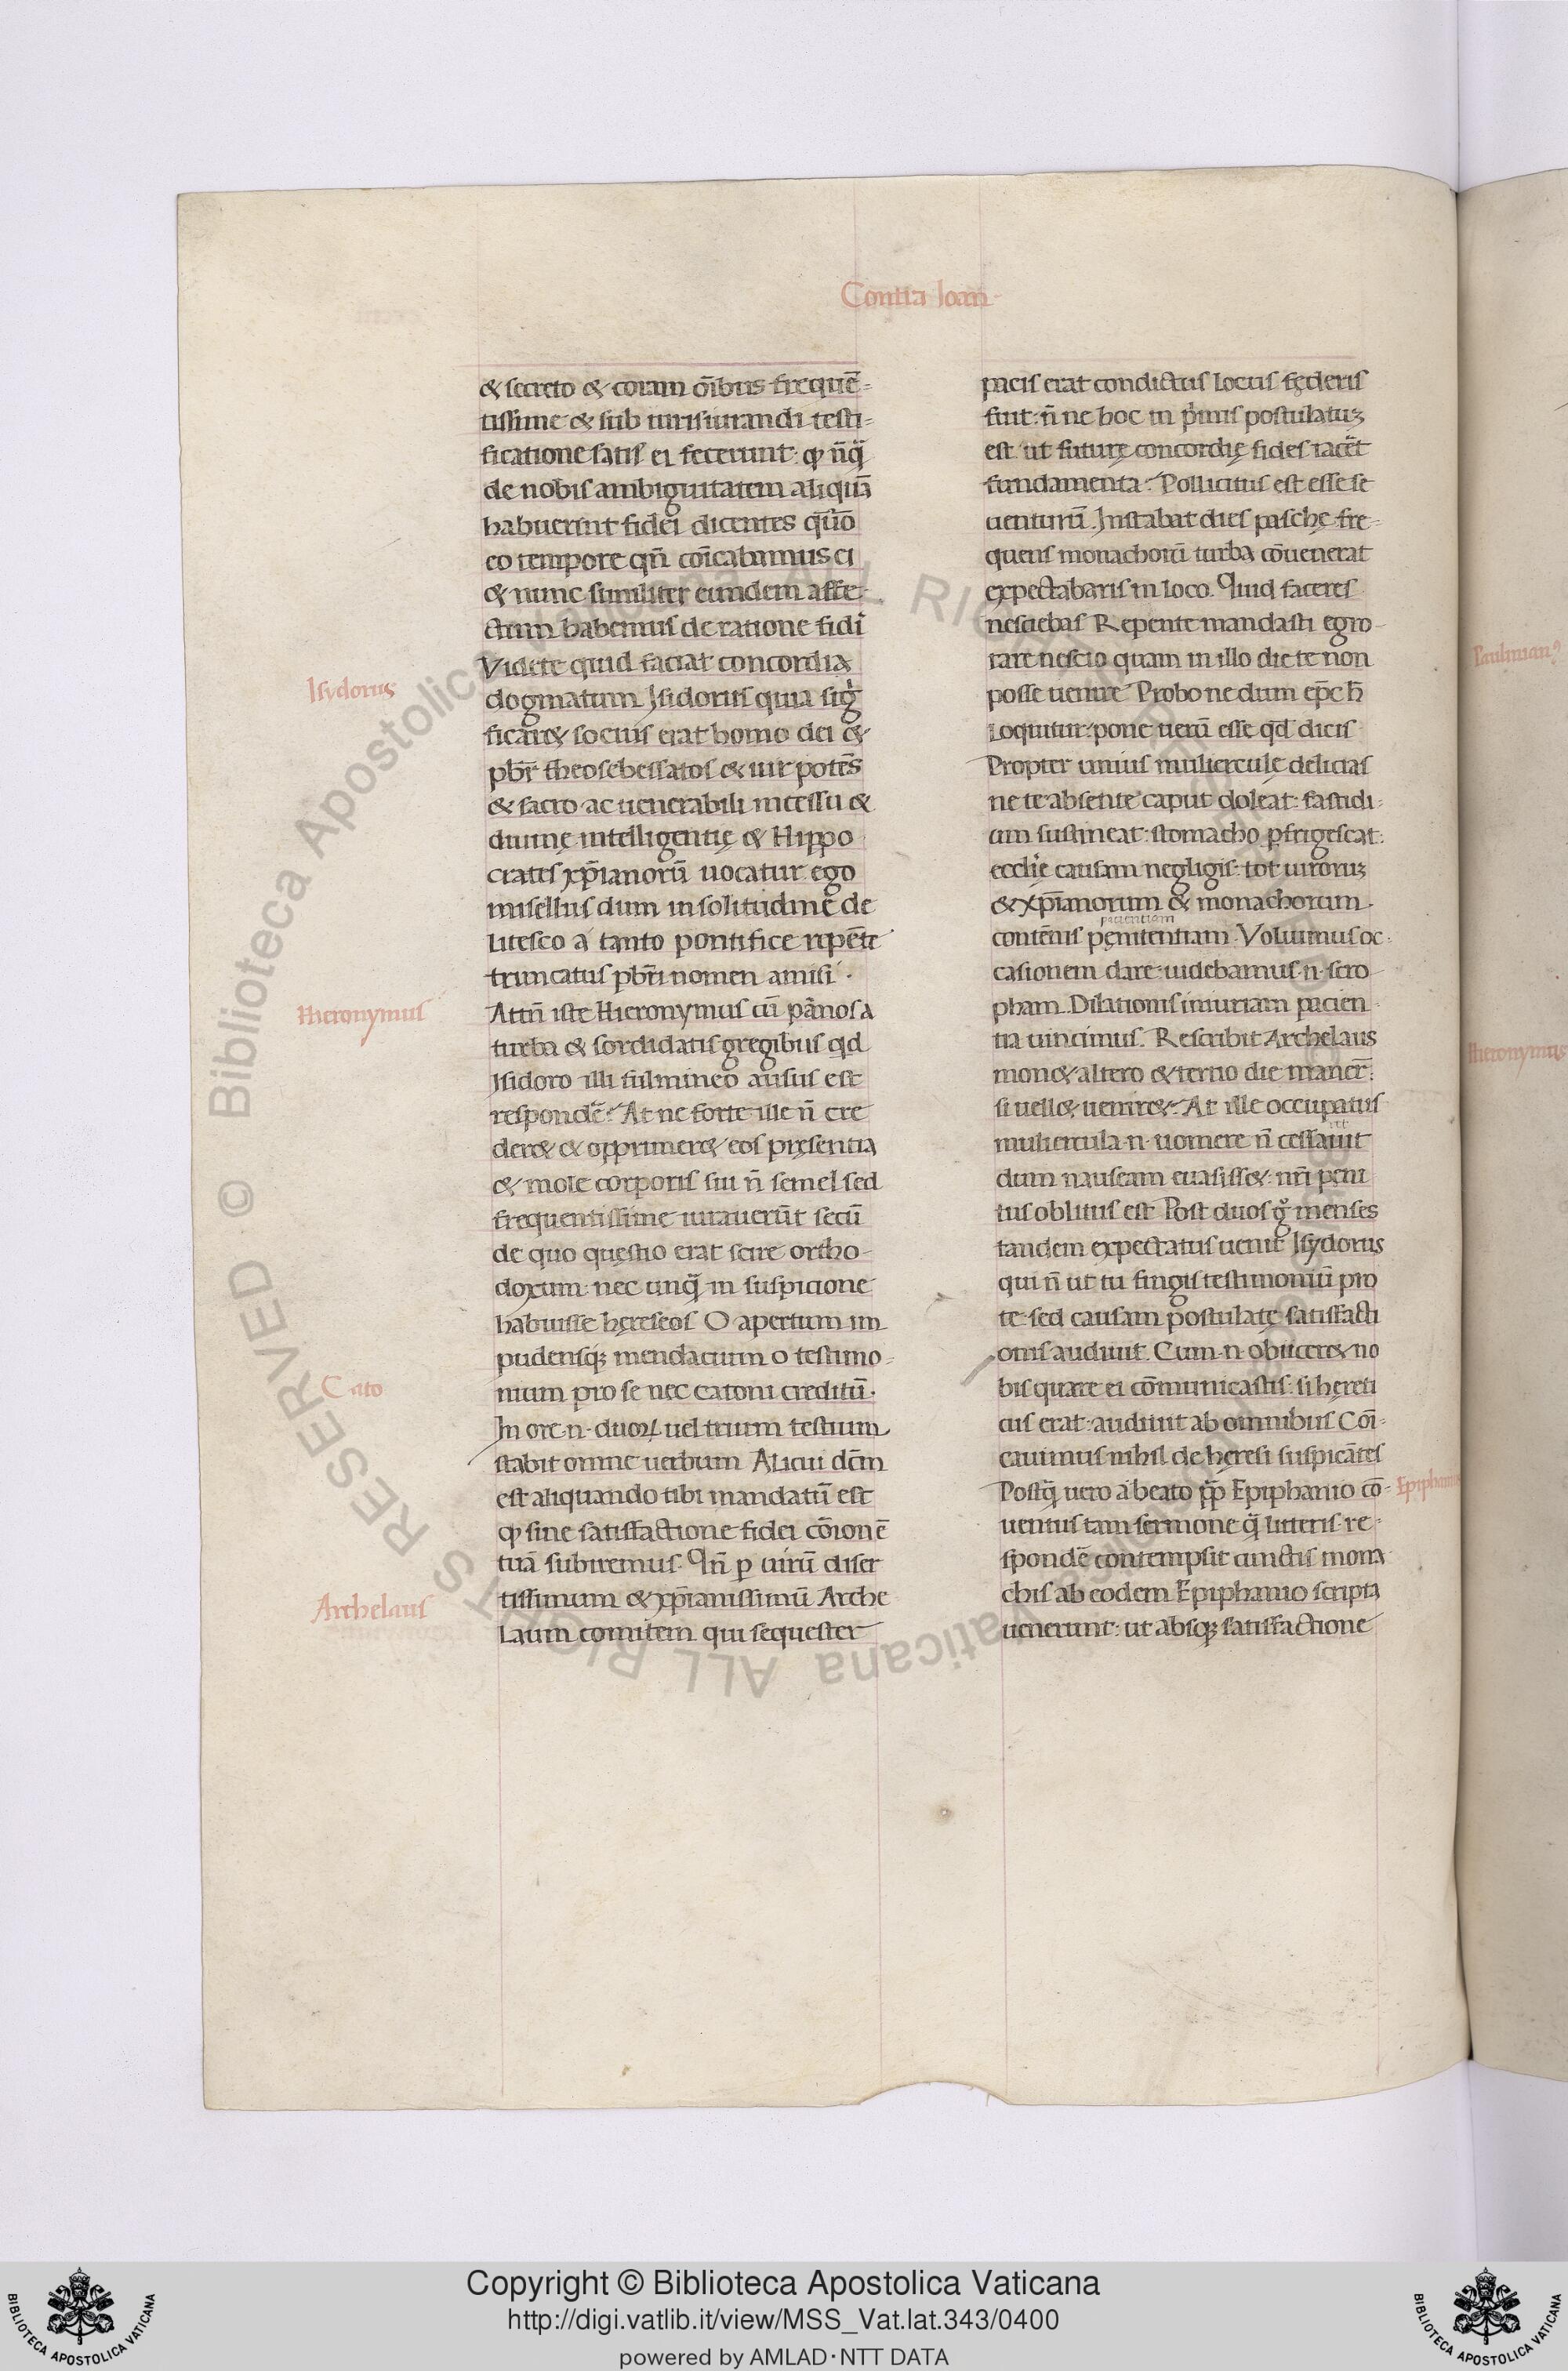 Contra Ioan
& secreto & coram oībus frequē-
tissime & sub iurisiurandi testi-
ficatione satis ei fecerunt: ꝙ nū̄q̄
de nobis ambiguitatem aliquā
habuerint fidei dicentes q̄uō
eo tempore qn̄ coīcabamus ei
& nunc similiter eundem affe-
ctum habemus de ratione fidi
Videte quid faciat concordia
dogmatum Isidorus quia sig
ficar& socius erat homo dei &
pbr̄ theosebessatos & uir potēs
& sacro ac uenerabili incessu &
diuinę intelligentię & Hippo
crates xp̄ianorū uocatur ego
misellus dum in solitudine de
Litesco a tanto pontifice repēte
truncatus pbr̄i nomen amisi.
Attn̄ iste Hieronymus cū panosa
turba & sordidatis gregibus qd
Isidoro illi fulmineo ausus est
respondē? At ne forte ille n̄ cre
der& & opprimer& eos pręsentia
& mole corporis sui n̄ semel sed
frequentissime iurauerūt secū
de quo quęstio erat scire ortho-
doxum: nec unq̄ in suspicione
habuisse hęreseos O apertum im
pudensq; mendacium o testimo-
nium pro se nec catoni creditū.
In ore.n.duoꝝ uel trium testium
stabit omne uerbum Alicui dc̄m
est aliquando tibi mandatū est
ꝙ sine satisfactione fidei cōionē
tuā subiremus. Nn̄ p uirū diser
tissimum & xp̄ianissimū Arche
Laum comitem qui sequester
Isydorus
Hieronymus
Cato
Archelaus
pacis erat condictus Locus fęderis
fuit: n̄ne hoc in p̄mis postulatuȝ
est ut futurę concordię fides iacēt
fundamenta? Pollicitus est esse se
uenturū. Instabat dies paschę fre-
quens monachorū turba cōuenerat
expectabaris in loco. Quid faceres
nesciebas Repente mandasti egro-
tare nescio quam in illo die te non
posse uenire Probo ne dum ep̄c h̄
Loquitur: pone uerū esse qd̄ dicis
Propter unius muliercule delicias
ne te absente caput doleat: fastidi-
um sustineat: stomacho pfrigescat:
ecclīe causam negligis: tot uiroruȝ
& xp̄ianorum & monachorum
pacientiam
contēnis pęnitentiam. Voluimus oc-
casionem dare: uidebamus.n.scro-
pham. Dilationis iniuriam pacien-
tia uincimus. Rescribit Archelaus
mon& altero & tertio die manēr:
si uell& uenire&. At ille occupatus
muliercula.n.uomere n̄ cessauit
dum nauseam euasiss&: nr̄i peni
tus oblitus est Post duos g̊ menses
tandem expectatus uenit Isydorus
qui n̄ ut tu fingis testimoniū pro
te sed causam postulatę satisfacti
onis audiuit. Cum.n.obiicer& no
bis quare ei cōmunicastis: si hęreti
cus erat audiuit ab omnibus Coī-
cauimus nihil de heresi suspicātes
Postq̄ uero a beato pp̄ Epiphanio cō-
uentus tam sermone q̄ litteris re-
spondē contempsit cunctis mona
chis ab eodem Epiphanio scripta
uenerunt: ut absq; satisfactione
Epiphanius
Hieronymus
© Biblioteca Apostolica Vaticana ALL RIGHTS RESERVED
Copyright © Biblioteca Apostolica Vaticana
http://digi.vatlib.it/view/MSS_Vat.lat.343/0400
powered by AMLAD·NTT DATA
BIBLIOTECA APOSTOLICA VATICANA
BIBLIOTECA APOSTOLICA VATICANA